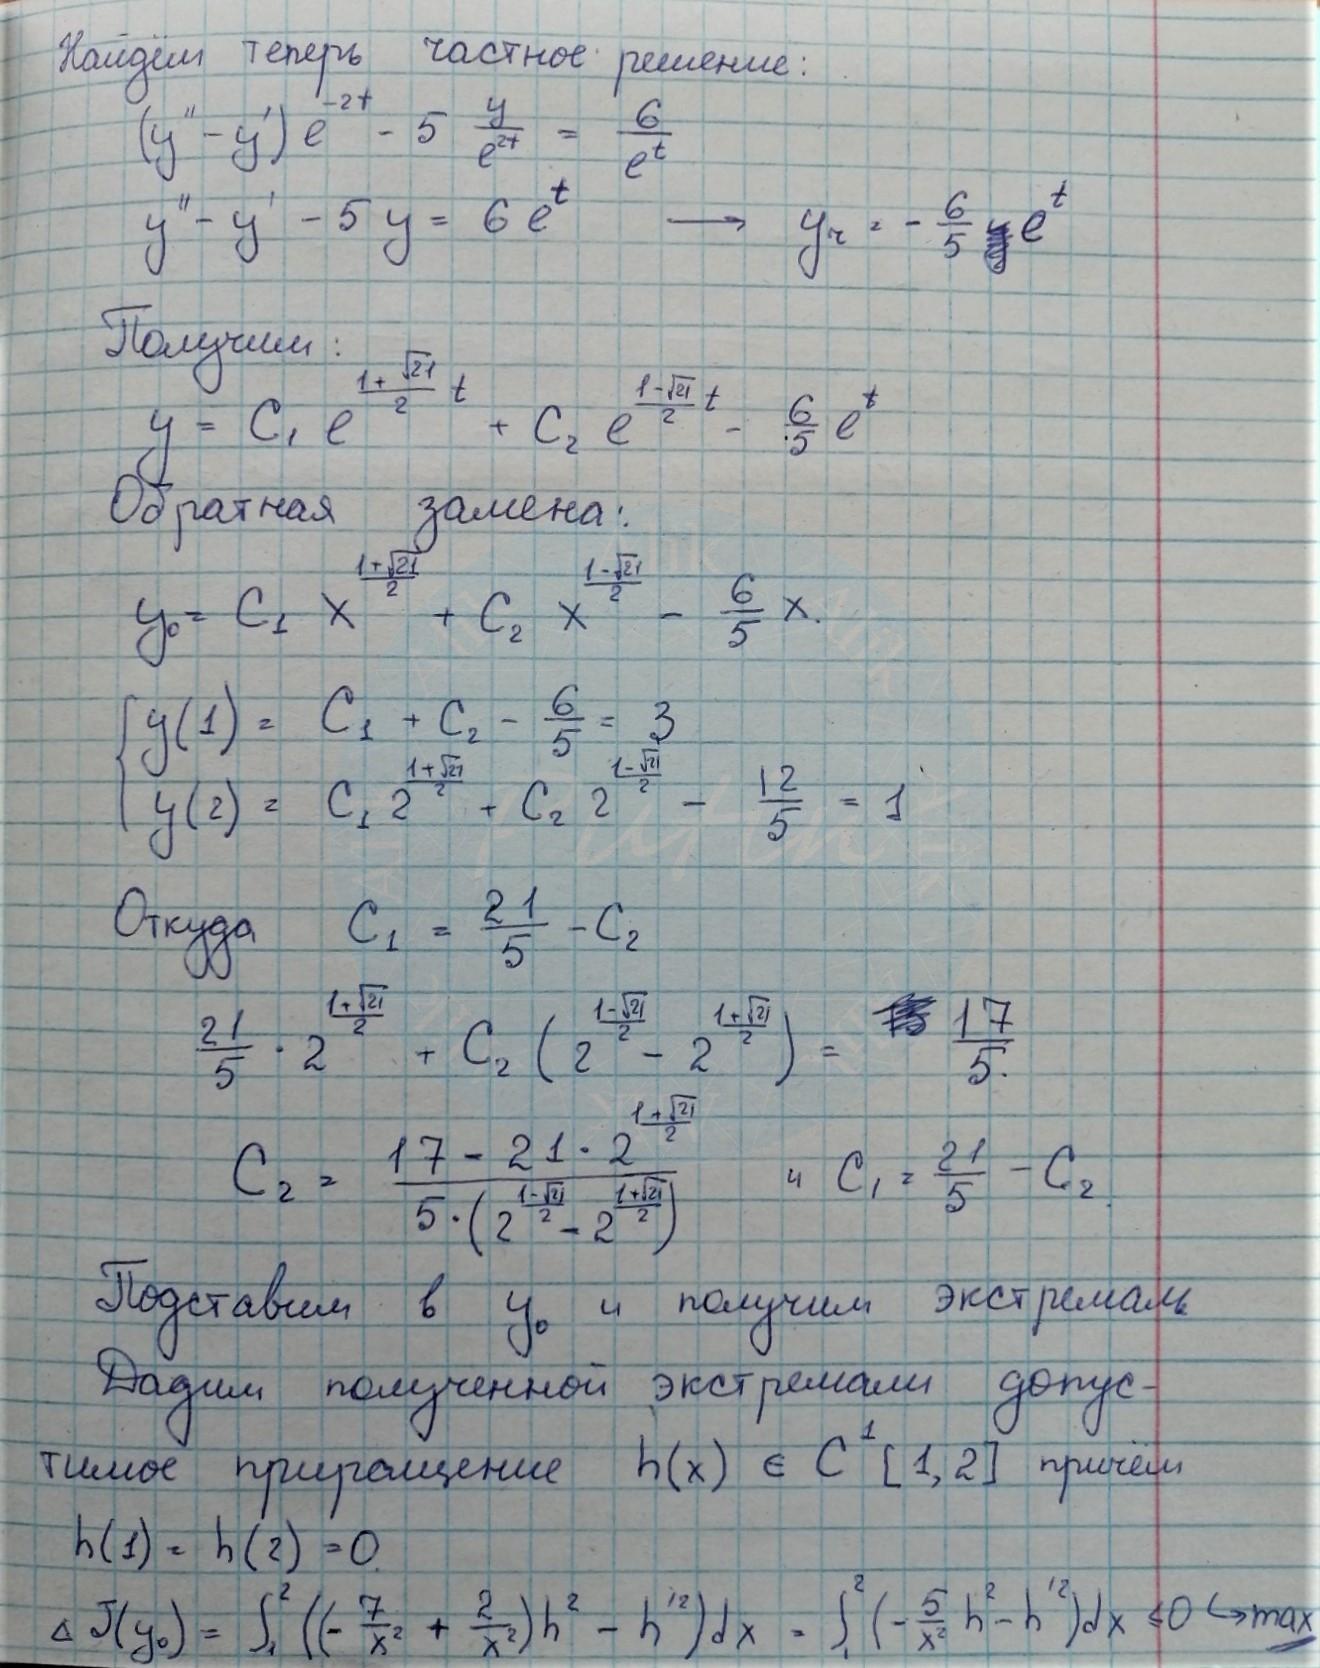 Найдём теперь частное решение:
(y'' - y') e^{-2t} - 5 \frac{y}{e^{2t}} = \frac{6}{e^t}
y'' - y' - 5y = 6e^t → y_ч = -\frac{6}{5} e^t
Получим:
y = C_1 e^{\frac{1+\sqrt{21}}{2} t} + C_2 e^{\frac{1-\sqrt{21}}{2} t} - \frac{6}{5} e^t
Обратная замена:
y_0 = C_1 x^{\frac{1+\sqrt{21}}{2}} + C_2 x^{\frac{1-\sqrt{21}}{2}} - \frac{6}{5} x.
{ y(1) = C_1 + C_2 - \frac{6}{5} = 3
y(2) = C_1 2^{\frac{1+\sqrt{21}}{2}} + C_2 2^{\frac{1-\sqrt{21}}{2}} - \frac{12}{5} = 1
Откуда C_1 = \frac{21}{5} - C_2
\frac{21}{5} · 2^{\frac{1+\sqrt{21}}{2}} + C_2 (2^{\frac{1-\sqrt{21}}{2}} - 2^{\frac{1+\sqrt{21}}{2}}) = \frac{17}{5}.
C_2 = \frac{17 - 21 · 2^{\frac{1+\sqrt{21}}{2}}}{5 · (2^{\frac{1-\sqrt{21}}{2}} - 2^{\frac{1+\sqrt{21}}{2}})} и C_1 = \frac{21}{5} - C_2.
Подставим в y_0 и получим экстремаль
Дадим полученной экстремали допус-
тимое приращение h(x) ∈ C^1 [1,2] причём
h(1) = h(2) = 0.
Δ J(y_0) = ∫_1^2 ((-\frac{7}{x^2} + \frac{2}{x^2})h^2 - h'^2)dx = ∫_1^2 (-\frac{5}{x^2} h^2 - h'^2)dx ≤ 0 ↪ max